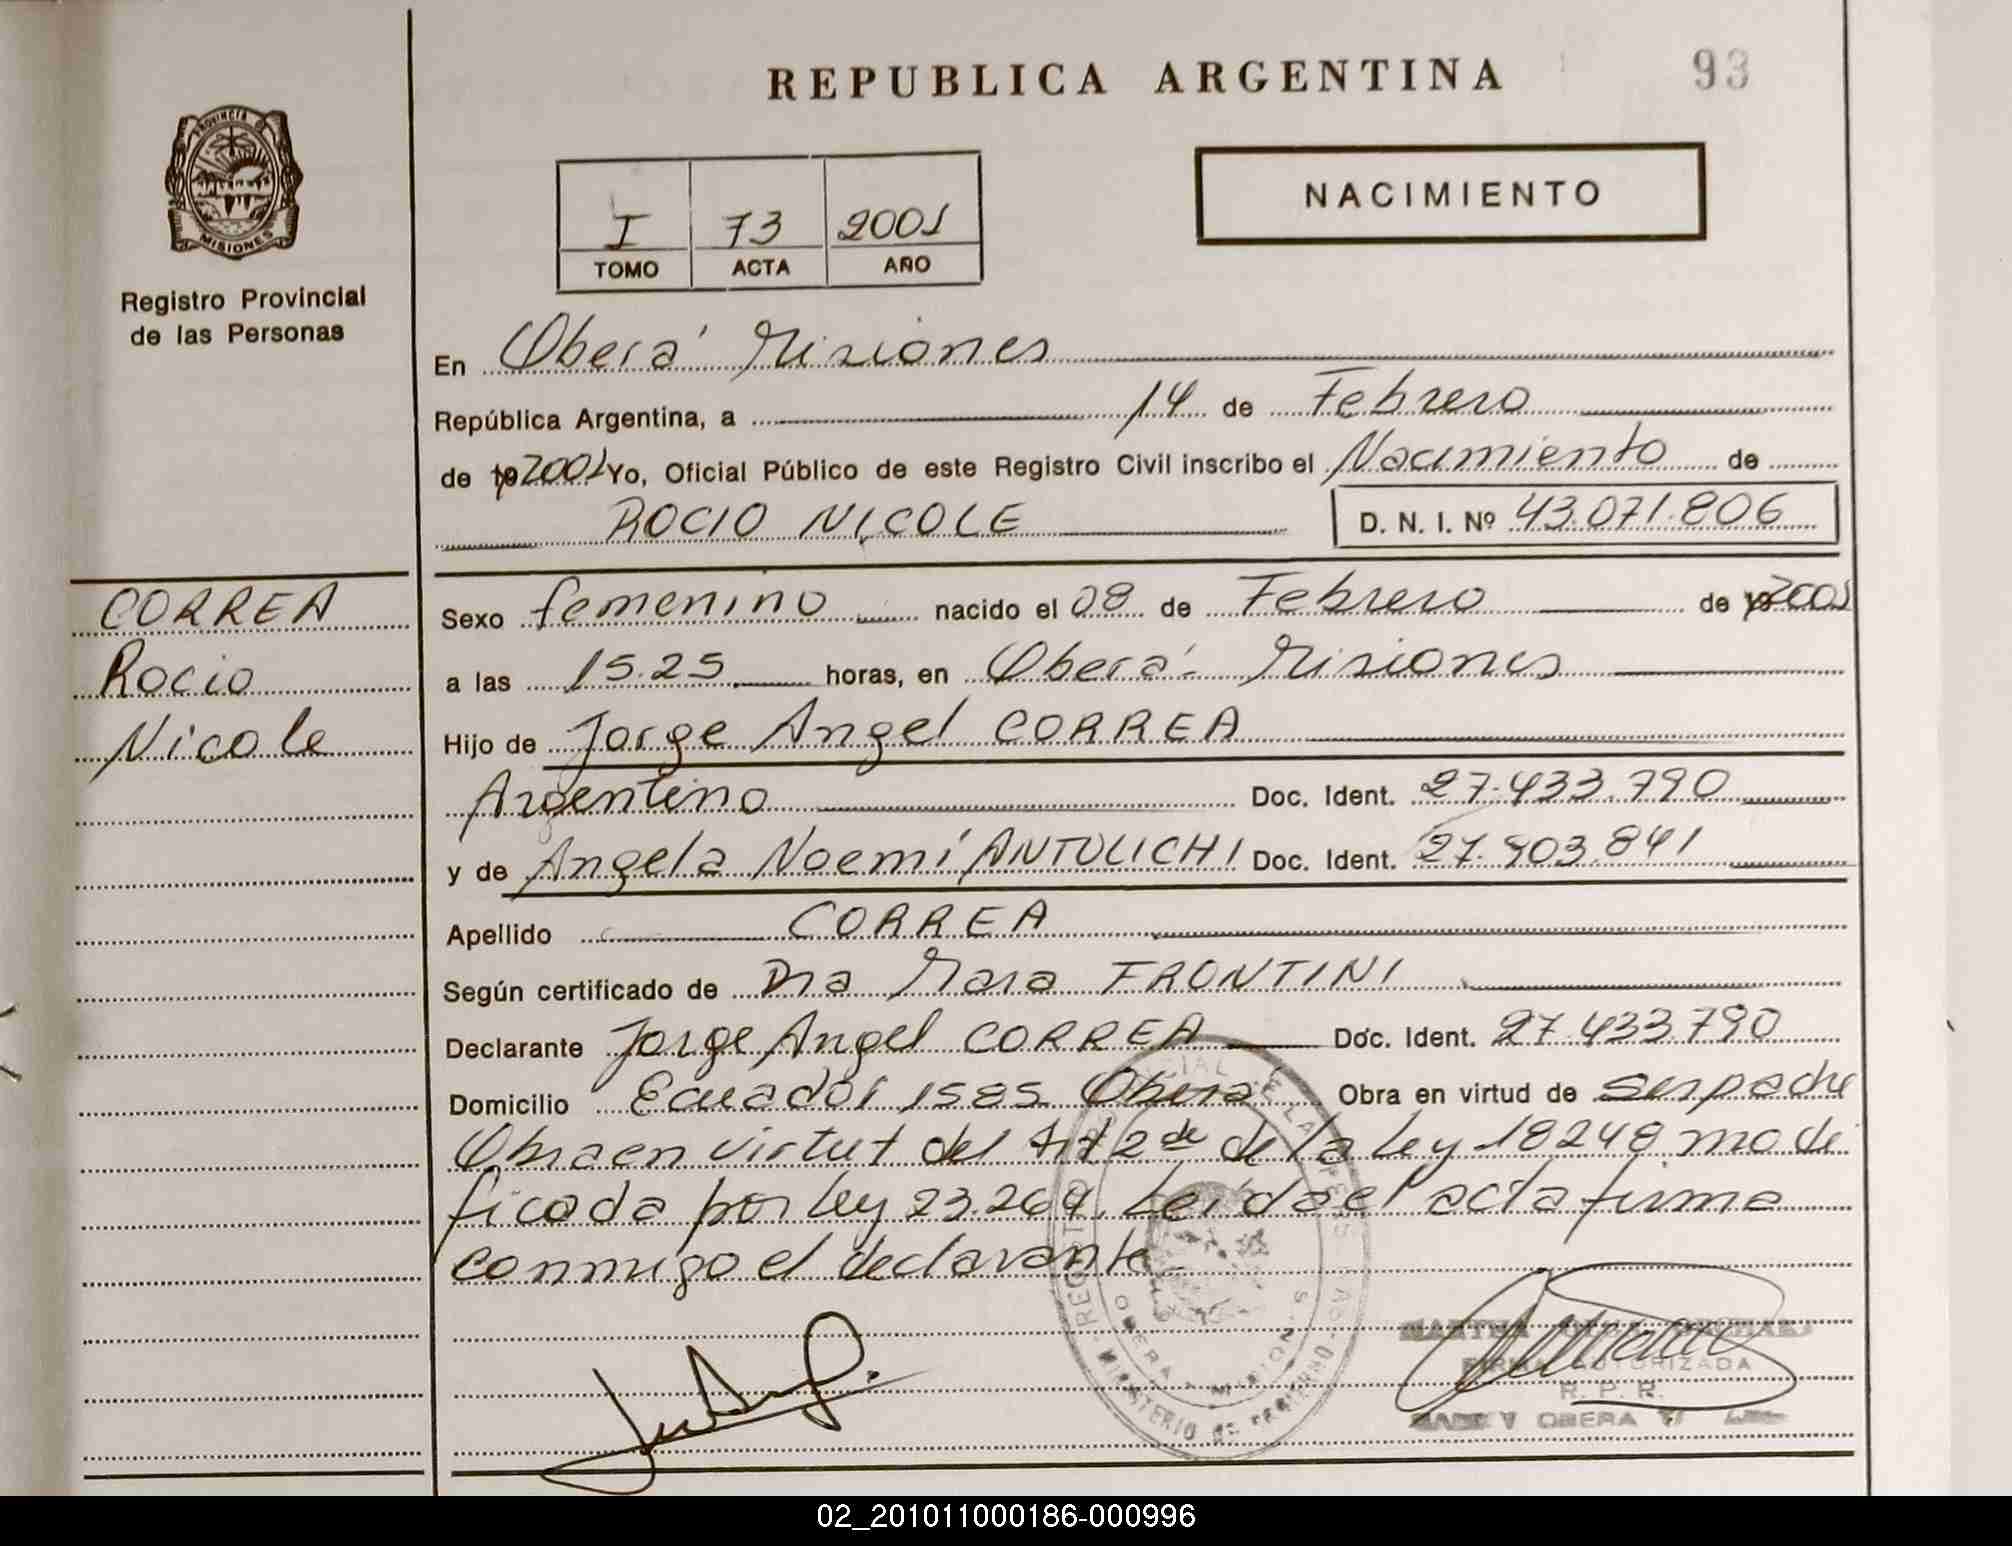 REPUBLICA ARGENTINA
93
PROVINCIA DE
MISIONES
Registro Provincial
de las Personas
I 73 2001
TOMO ACTA AÑO
NACIMIENTO
En Oberá Misiones
República Argentina, a 14 de Febrero
de 19 2001 Yo, Oficial Público de este Registro Civil inscribo el Nacimiento de
ROCIO NICOLE D. N. I. Nº 43.071.806
CORREA
Rocio
Nicole
Sexo femenino nacido el 08 de Febrero de 19 2001
a las 15.25 horas, en Oberá - Misiones
Hijo de Jorge Angel CORREA
Argentino Doc. Ident. 27.433.790
y de Angela Noemí ANTULICHI Doc. Ident. 27.903.841
Apellido CORREA
Según certificado de Dra Mara FRONTINI
Declarante Jorge Angel CORREA Doc. Ident. 27.433.790
Domicilio Ecuador 1585 Oberá Obra en virtud de ser padre
Obra en virtut del Art 2de de la ley 18248 modi
ficada por ley 23.264. Leída el acta firma
conmigo el declarante
REGISTRO PROVINCIAL DE LAS PERSONAS
OBERA - MISIONES
MINISTERIO DE GOBIERNO
MARTHA
FIRMA AUTORIZADA
R. P. R.
OBERA
02_201011000186-000996